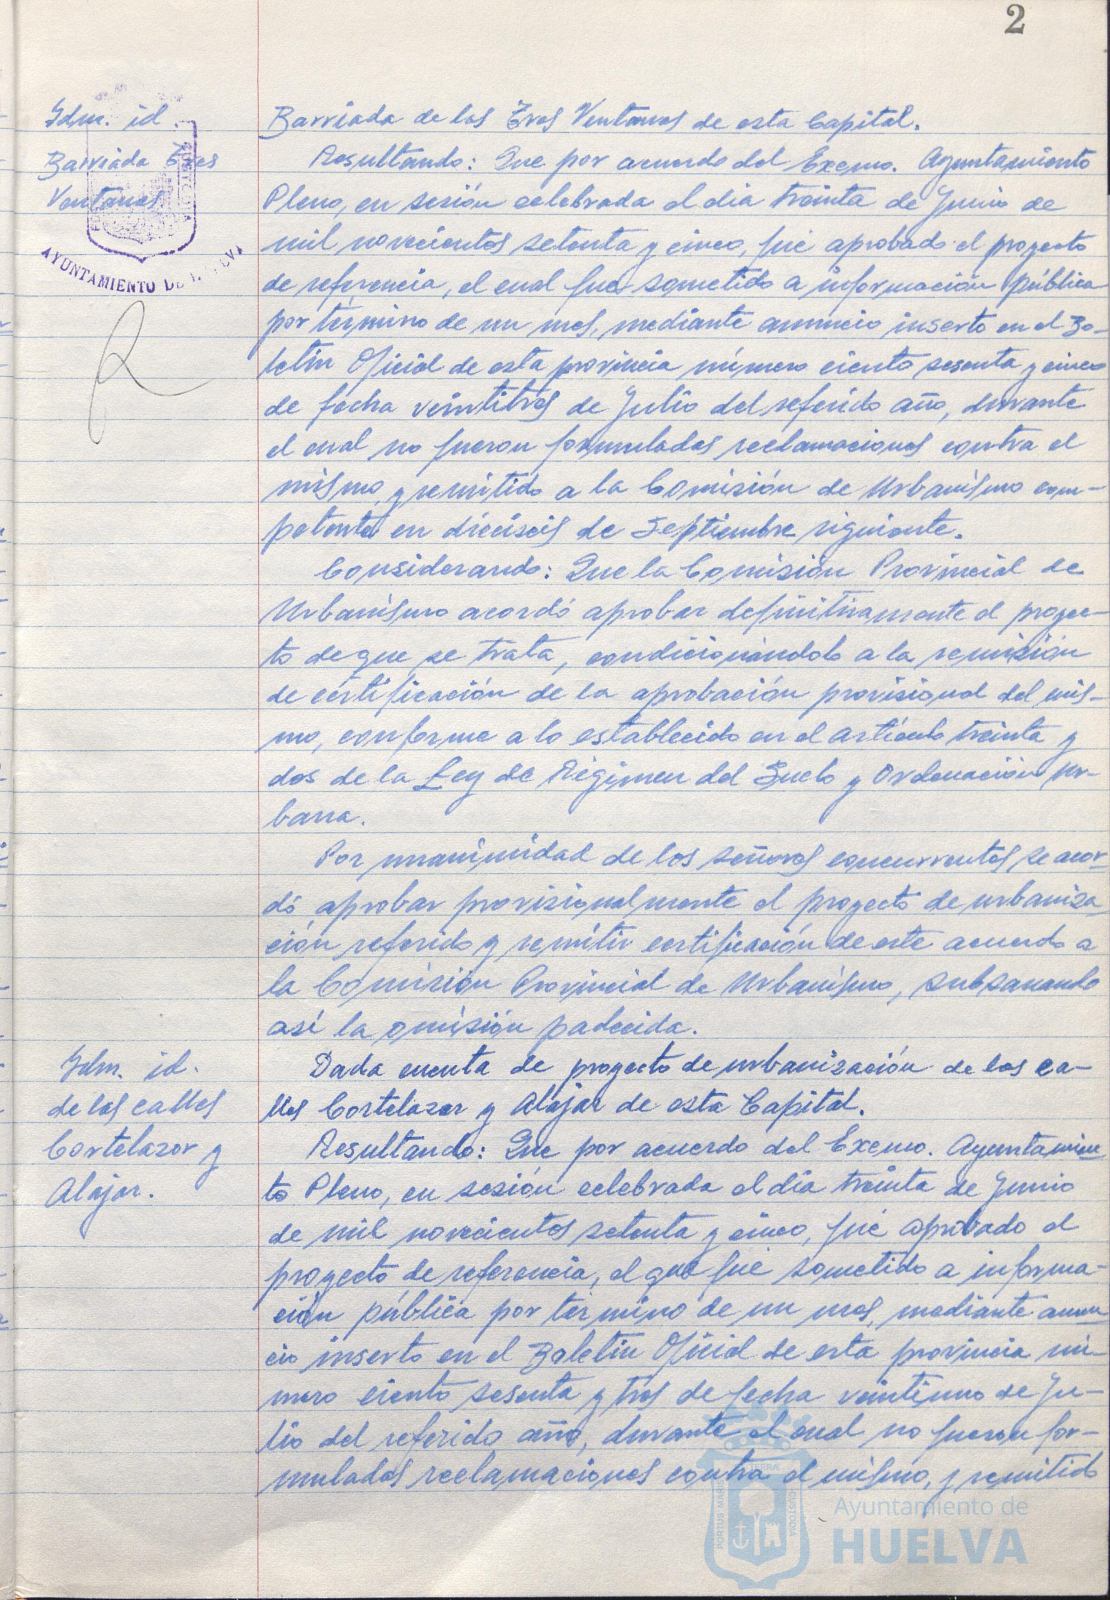 2
Idm. id.
Barriada Tres
Ventanas
AYUNTAMIENTO DE HUELVA
Barriada de las Tres Ventanas de esta Capital.
Resultando: Que por acuerdo del Excmo. Ayuntamiento
Pleno, en sesión celebrada el día treinta de Junio de
mil novecientos setenta y cinco, fué aprobado el proyecto
de referencia, el cual fue sometido a información pública
por término de un mes, mediante anuncio inserto en el Bo-
letín Oficial de esta provincia número ciento sesenta y cinco
de fecha veintitres de Julio del referido año, durante
el cual no fueron formuladas reclamaciones contra el
mismo, y remitido a la Comisión de Urbanismo com-
petente en dieciseis de Septiembre siguiente.
Considerando: Que la Comisión Provincial de
Urbanismo acordó aprobar definitivamente el proyec-
to de que se trata, condicionándolo a la remisión
de certificación de la aprobación provisional del mis-
mo, conforme a lo establecido en el artículo treinta y
dos de la Ley de Régimen del Suelo y Ordenación Ur-
bana.
Por unanimidad de los señores concurrentes se acor-
dó aprobar provisionalmente el proyecto de urbaniza-
ción referido y remitir certificación de este acuerdo a
la Comisión Provincial de Urbanismo, subsanando
así la omisión padecida.
Idm. id.
de las calles
Cortelazor y
Alajar.
Dada cuenta de proyecto de urbanización de las ca-
lles Cortelazor y Alajar de esta Capital.
Resultando: Que por acuerdo del Excmo. Ayuntamien-
to Pleno, en sesión celebrada el día treinta de Junio
de mil novecientos setenta y cinco, fué aprobado el
proyecto de referencia, el que fué sometido a informa-
ción pública por término de un mes, mediante anun-
cio inserto en el Boletín Oficial de esta provincia nú-
mero ciento sesenta y tres de fecha veintiuno de Ju-
lio del referido año, durante el cual no fueron for-
muladas reclamaciones contra el mismo, y remitido
PORTUS MARIS
CUSTODIA
Ayuntamiento de
HUELVA